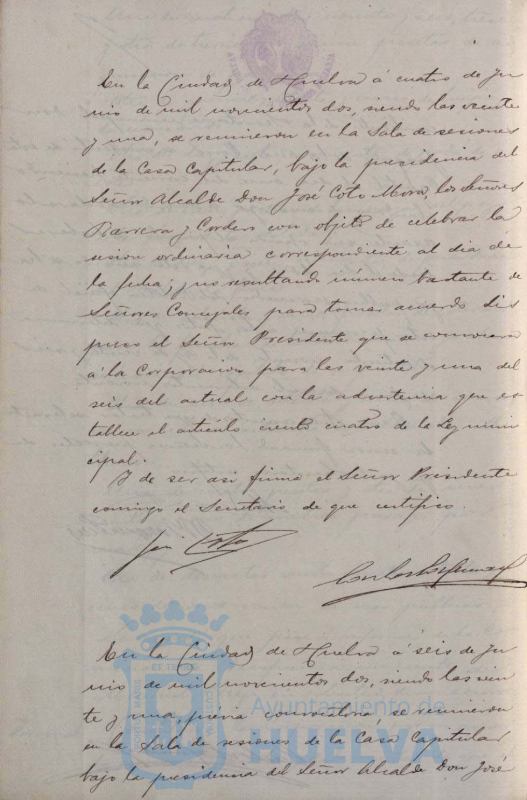 En la Ciudad de Huelva á cuatro de Ju
nio de mil novecientos dos, siendo las veinte
y una, se reunieron en la Sala de sesiones
de la Casa Capitular, bajo la presidencia del
Señor Alcalde Don José Coto Mora, los Señores
Barrera y Cordero con objeto de celebrar la
sesion ordinaria correspondiente al dia de
la fecha; y no resultando número bastante de
Señores Concejales para tomar acuerdo dis
puso el Señor Presidente que se convocara
á la Corporacion para las veinte y una del
seis del actual con la advertencia que es
tablece el artículo ciento cuatro de la Ley muni
cipal.
Y de ser asi firma el Señor Presidente
conmigo el Secretario de que certifico.
José Coto
En la Ciudad de Huelva á seis de Ju
nio de mil novecientos dos, siendo las vein
te y una, prévia convocatoria, se reunieron
en la Sala de sesiones de la Casa Capitular
bajo la presidencia del Señor Alcalde Don José
Ayuntamiento de
HUELVA